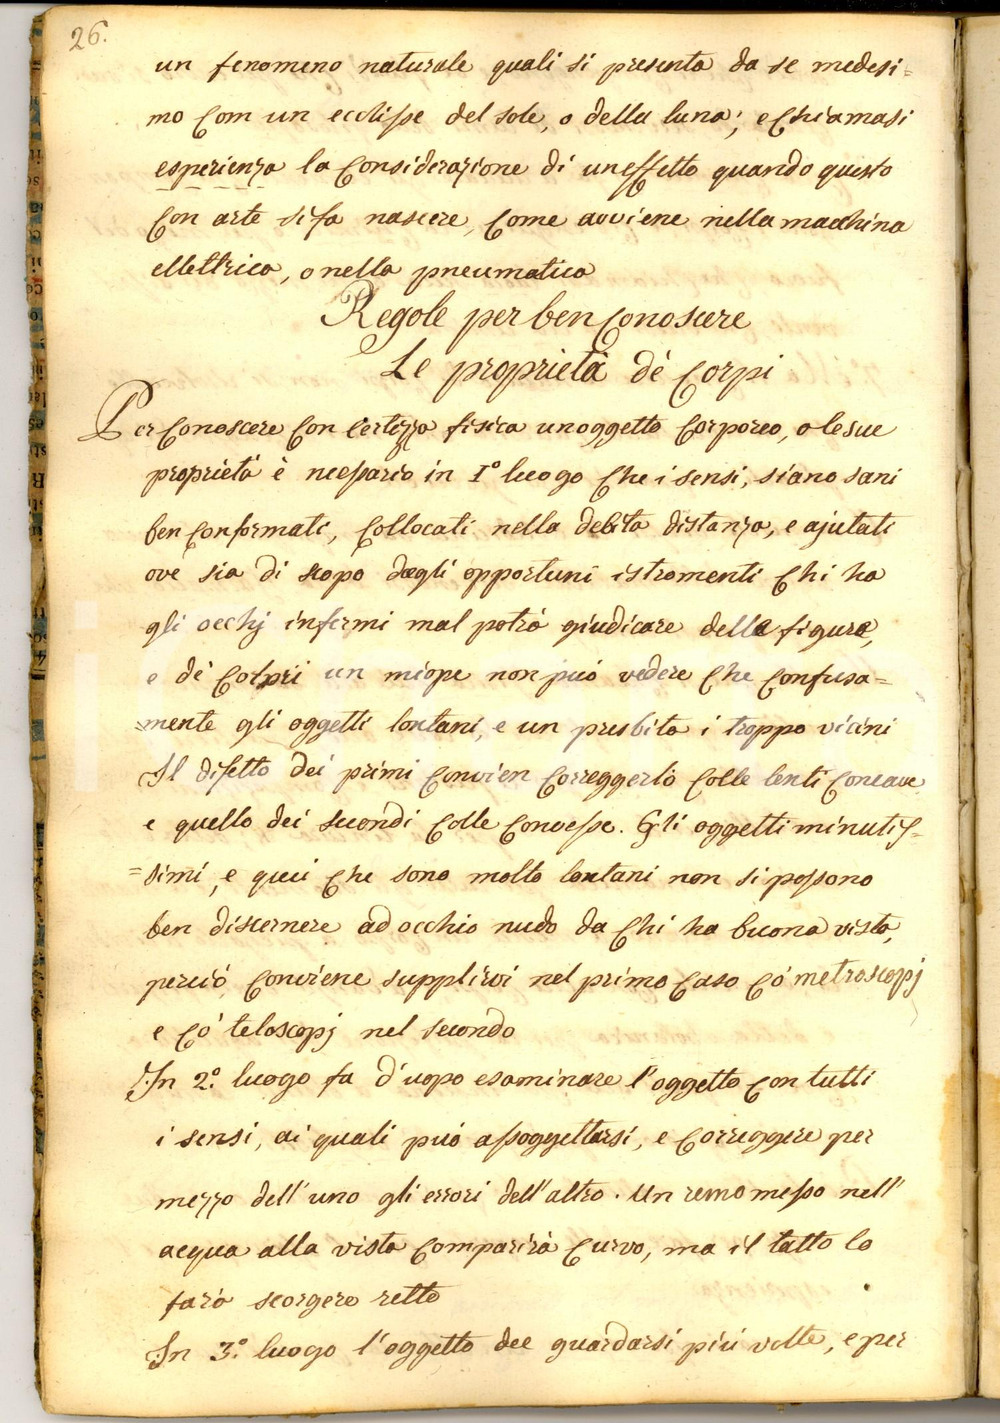 26.
un fenomeno naturale quali si presenta da se medesi=
mo Com un ecclisse del sole, o della luna; e Chiamasi
esperienza la Considerazione di un effetto quando questo
Con arte si fa nascere, Come avviene nella macchina
ellettrica, o nella pneumatica
Regole per ben Conoscere
Le proprietà dè Corpi
Per Conoscere Con Certezza fisica un oggetto Corporeo, o le sue
proprietà è necessario in 1° luogo Che i sensi, siano sani
ben Conformati, Collocati nella debita distanza, e ajutati
ove sia di scopo dagli opportuni istromenti Chi ha
gli occhj infermi mal potrà giudicare della figura,
e dè un miope non può vedere Che Confusa=
=mente gli oggetti lontani, e un presbita i troppo vicini
Il difetto dei primi Convien Correggerlo Colle lenti Concave
e quello dei secondi Colle Convesse. Gli oggetti minutis=
=simi, e quei Che sono molto lontani non si possono
ben discernere ad occhio nudo da Chi ha buona vista,
perciò Conviene supplirvi nel primo Caso Co' metroscopj
e Co' teloscopj nel secondo
In 2.° luogo fa d'uopo esaminare l'oggetto Con tutti
i sensi, ai quali può assoggettarsi, e Correggere per
mezzo dell'uno gli errori dell'altro. Un remo messo nell'
acqua alla vista Comparirà Curvo, ma il tatto lo
farà scorgere retto
In 3.° luogo l'oggetto dee guardarsi più volte, e per